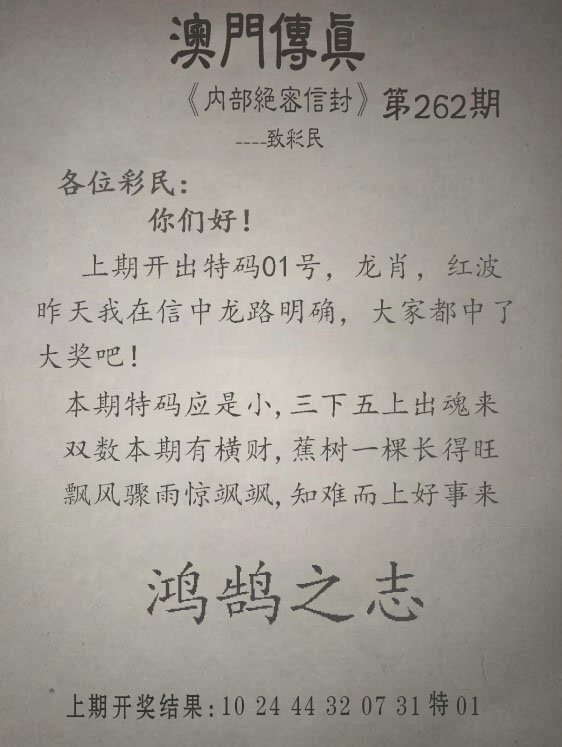 澳門傳眞
《内部絕密信封》第262期
----致彩民
各位彩民：
你们好！
上期开出特码01号，龙肖，红波
昨天我在信中龙路明确，大家都中了
大奖吧！
本期特码应是小,三下五上出魂来
双数本期有横财,蕉树一棵长得旺
飘风骤雨惊飒飒,知难而上好事来
鸿鹄之志
上期开奖结果:10 24 44 32 07 31 特 01